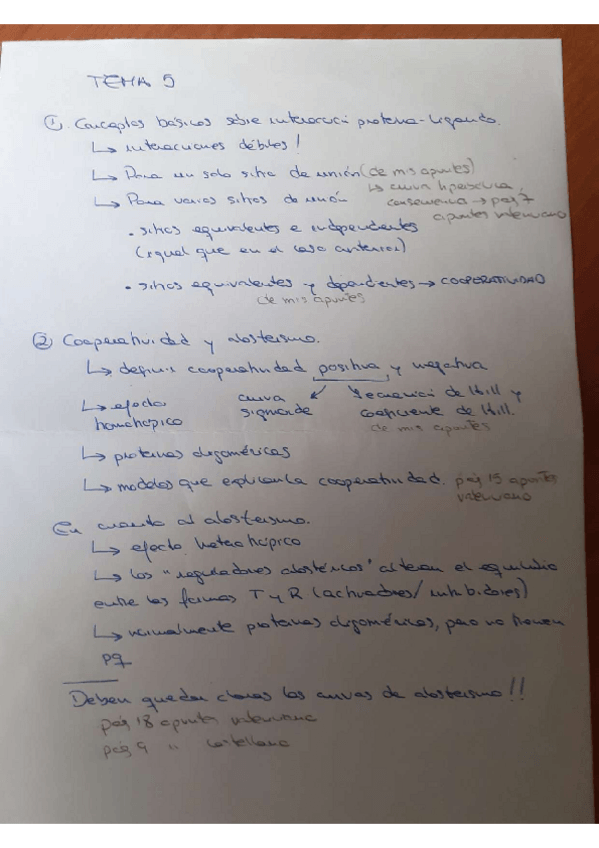 TEMA 5
① Conceptos básicos sobre interacció proteína-ligando.
↳ interacciones débiles!
↳ Para un solo sitio de unión (de mis apuntes)
↳ curva hiperbólica,
↳ Para varios sitios de unión
consecuencia → pág 7
apuntes valenciano
• sitios equivalentes e independientes
(igual que en el caso anterior)
• sitios equivalentes y dependientes → COOPERATIVIDAD
de mis apuntes
② Cooperatividad y alosterismo.
↳ definir cooperatividad positiva y negativa
↳ efecto homotrópico
curva sigmoide
↳ ecuació de Hill y
coeficiente de Hill.
de mis apuntes
↳ proteínas oligoméricas
↳ modelos que explican la cooperatividad. pág 15 apuntes
valenciano
En cuanto al alosterismo.
↳ efecto heterotrópico
↳ los "reguladores alostéricos" alteran el equilibrio
entre las formas T y R (activadores/inhibidores)
↳ normalmente proteínas oligoméricas, pero no tienen
pq
Deben quedar claras las curvas de alosterismo!!
pág 18 apuntes valenciano
pág 9 " castellano